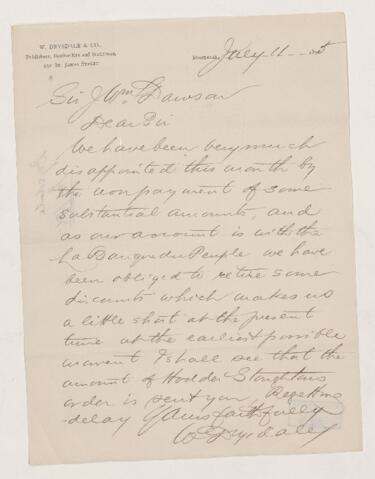 W. DRYSDALE & CO.,
Publishers, Booksellers and Stationers,
232 St. James Street
Montreal, July 11
Sir J Wm Dawson
Dear Sir
We have been very much
disappointed this month by
the non payment of some
substantial amounts, and
as our account is with the
La Banque du Peuple we have
been obliged to retire some
discounts which makes us
a little short at the present
time at the earliest possible
moment I shall see that the
amount of Hodder Stoughtons
order is sent you, Regetting
delay Yours faithfully
W Drysdale